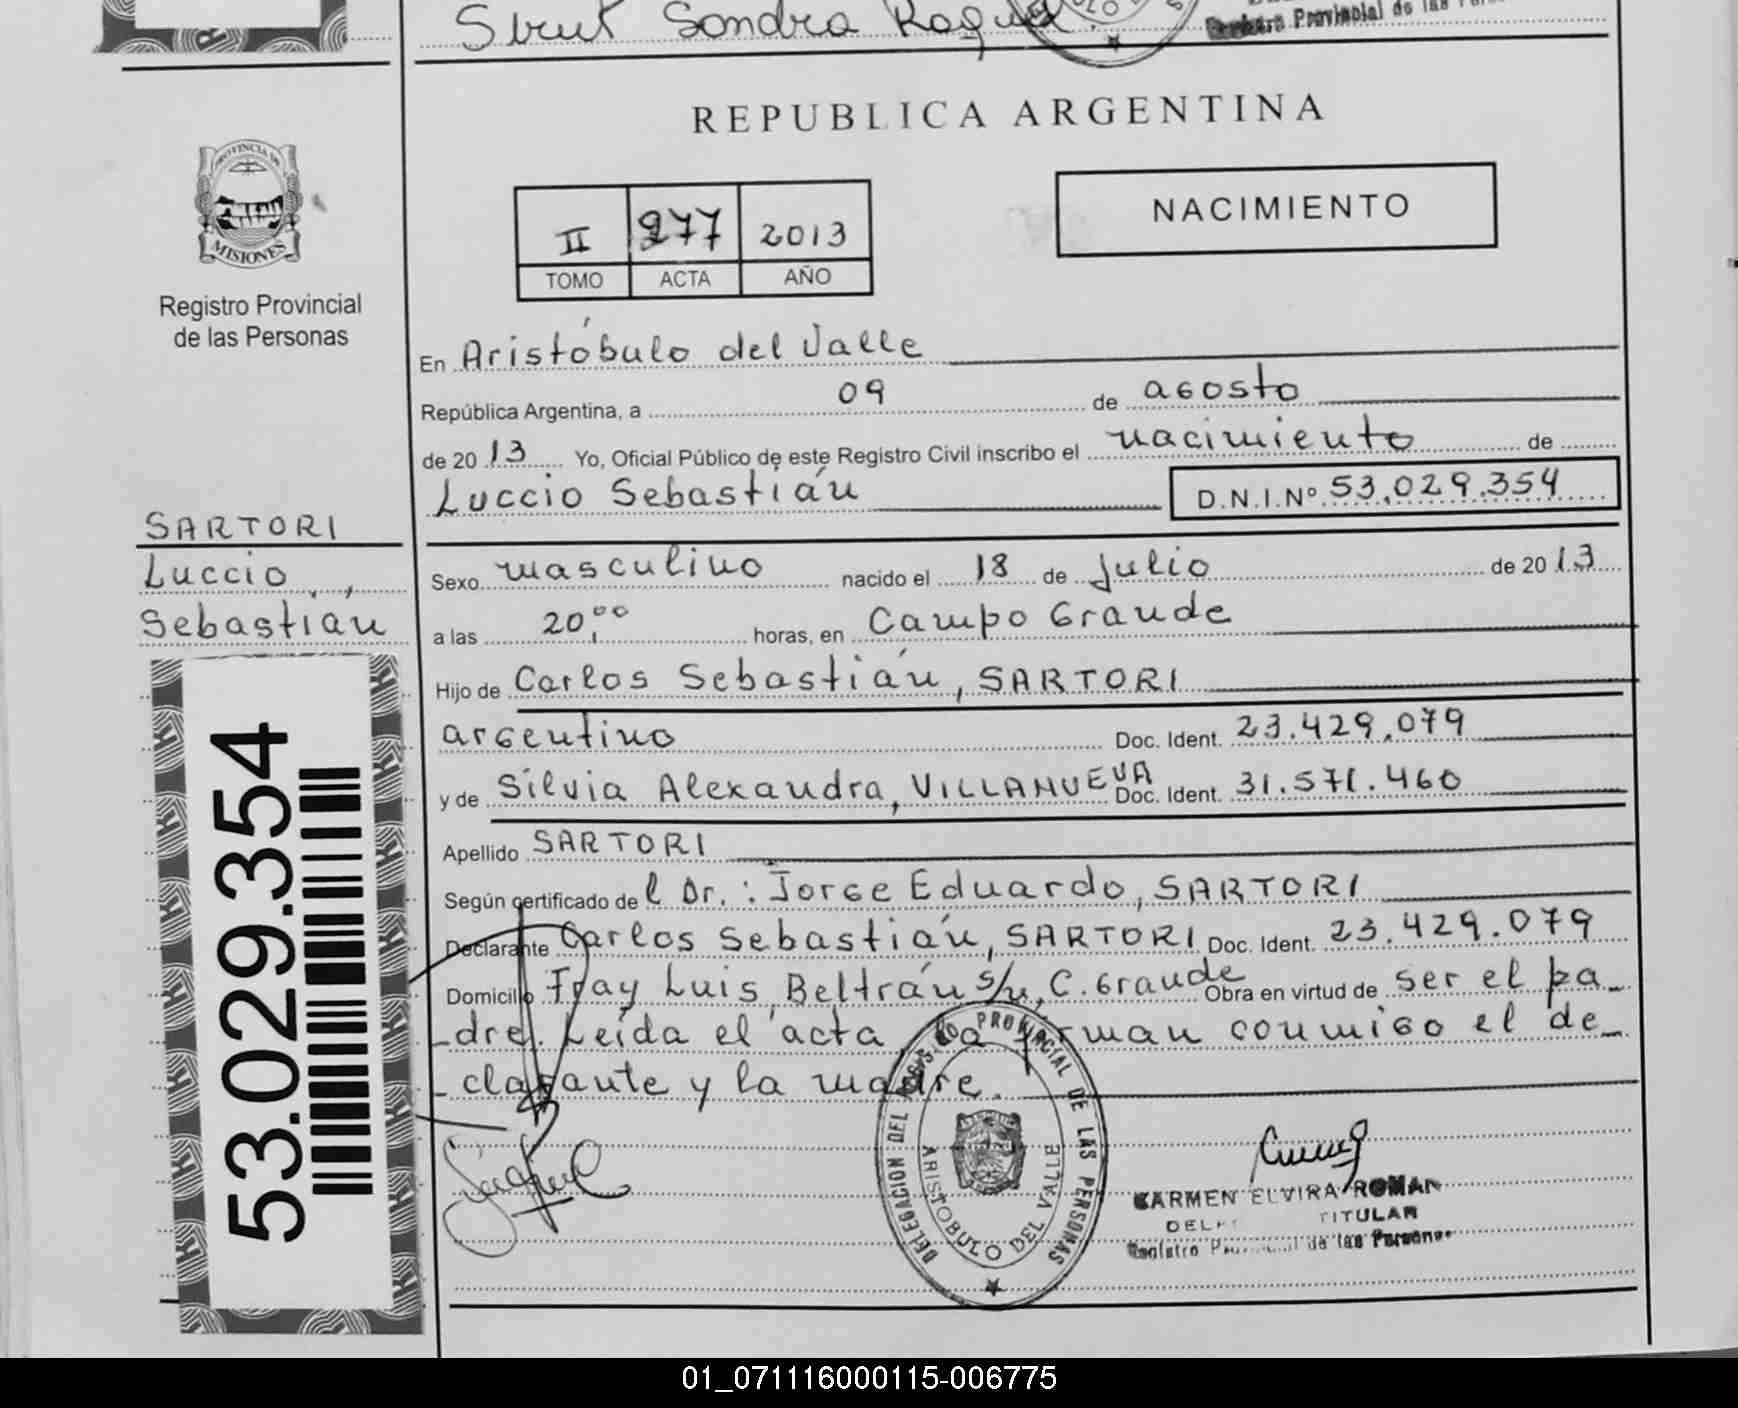 Strut Sandra Raquel
Provincial de las
REPUBLICA ARGENTINA
PROVINCIA DE
MISIONES
Registro Provincial
de las Personas
II 277 2013
TOMO ACTA AÑO
NACIMIENTO
En Aristóbulo del Valle
República Argentina, a 09 de agosto
de 2013 Yo, Oficial Público de este Registro Civil inscribo el nacimiento de
Luccio Sebastián D.N.I.Nº 53.029.354
SARTORI
Luccio
Sebastián
Sexo masculino nacido el 18 de julio de 2013
a las 20,00 horas, en Campo Grande
Hijo de Carlos Sebastián, SARTORI
argentino Doc. Ident. 23.429.079
y de Silvia Alexandra, VILLANUEVA Doc. Ident. 31.571.460
Apellido SARTORI
Según certificado de l Dr.: Jorge Eduardo, SARTORI
Declarante Carlos Sebastián, SARTORI Doc. Ident. 23.429.079
Domicilio Fray Luis Beltrán s/n, C. Grande Obra en virtud de ser el pa_
_dre. Leída el acta, la firman conmigo el de_
_clarante y la madre.
53.029.354
DELEGACION DEL REGISTRO PROVINCIAL DE LAS PERSONAS
ARISTOBULO DEL VALLE
CARMEN ELVIRA ROMAN
TITULAR
Registro Provincial de las Personas
01_071116000115-006775